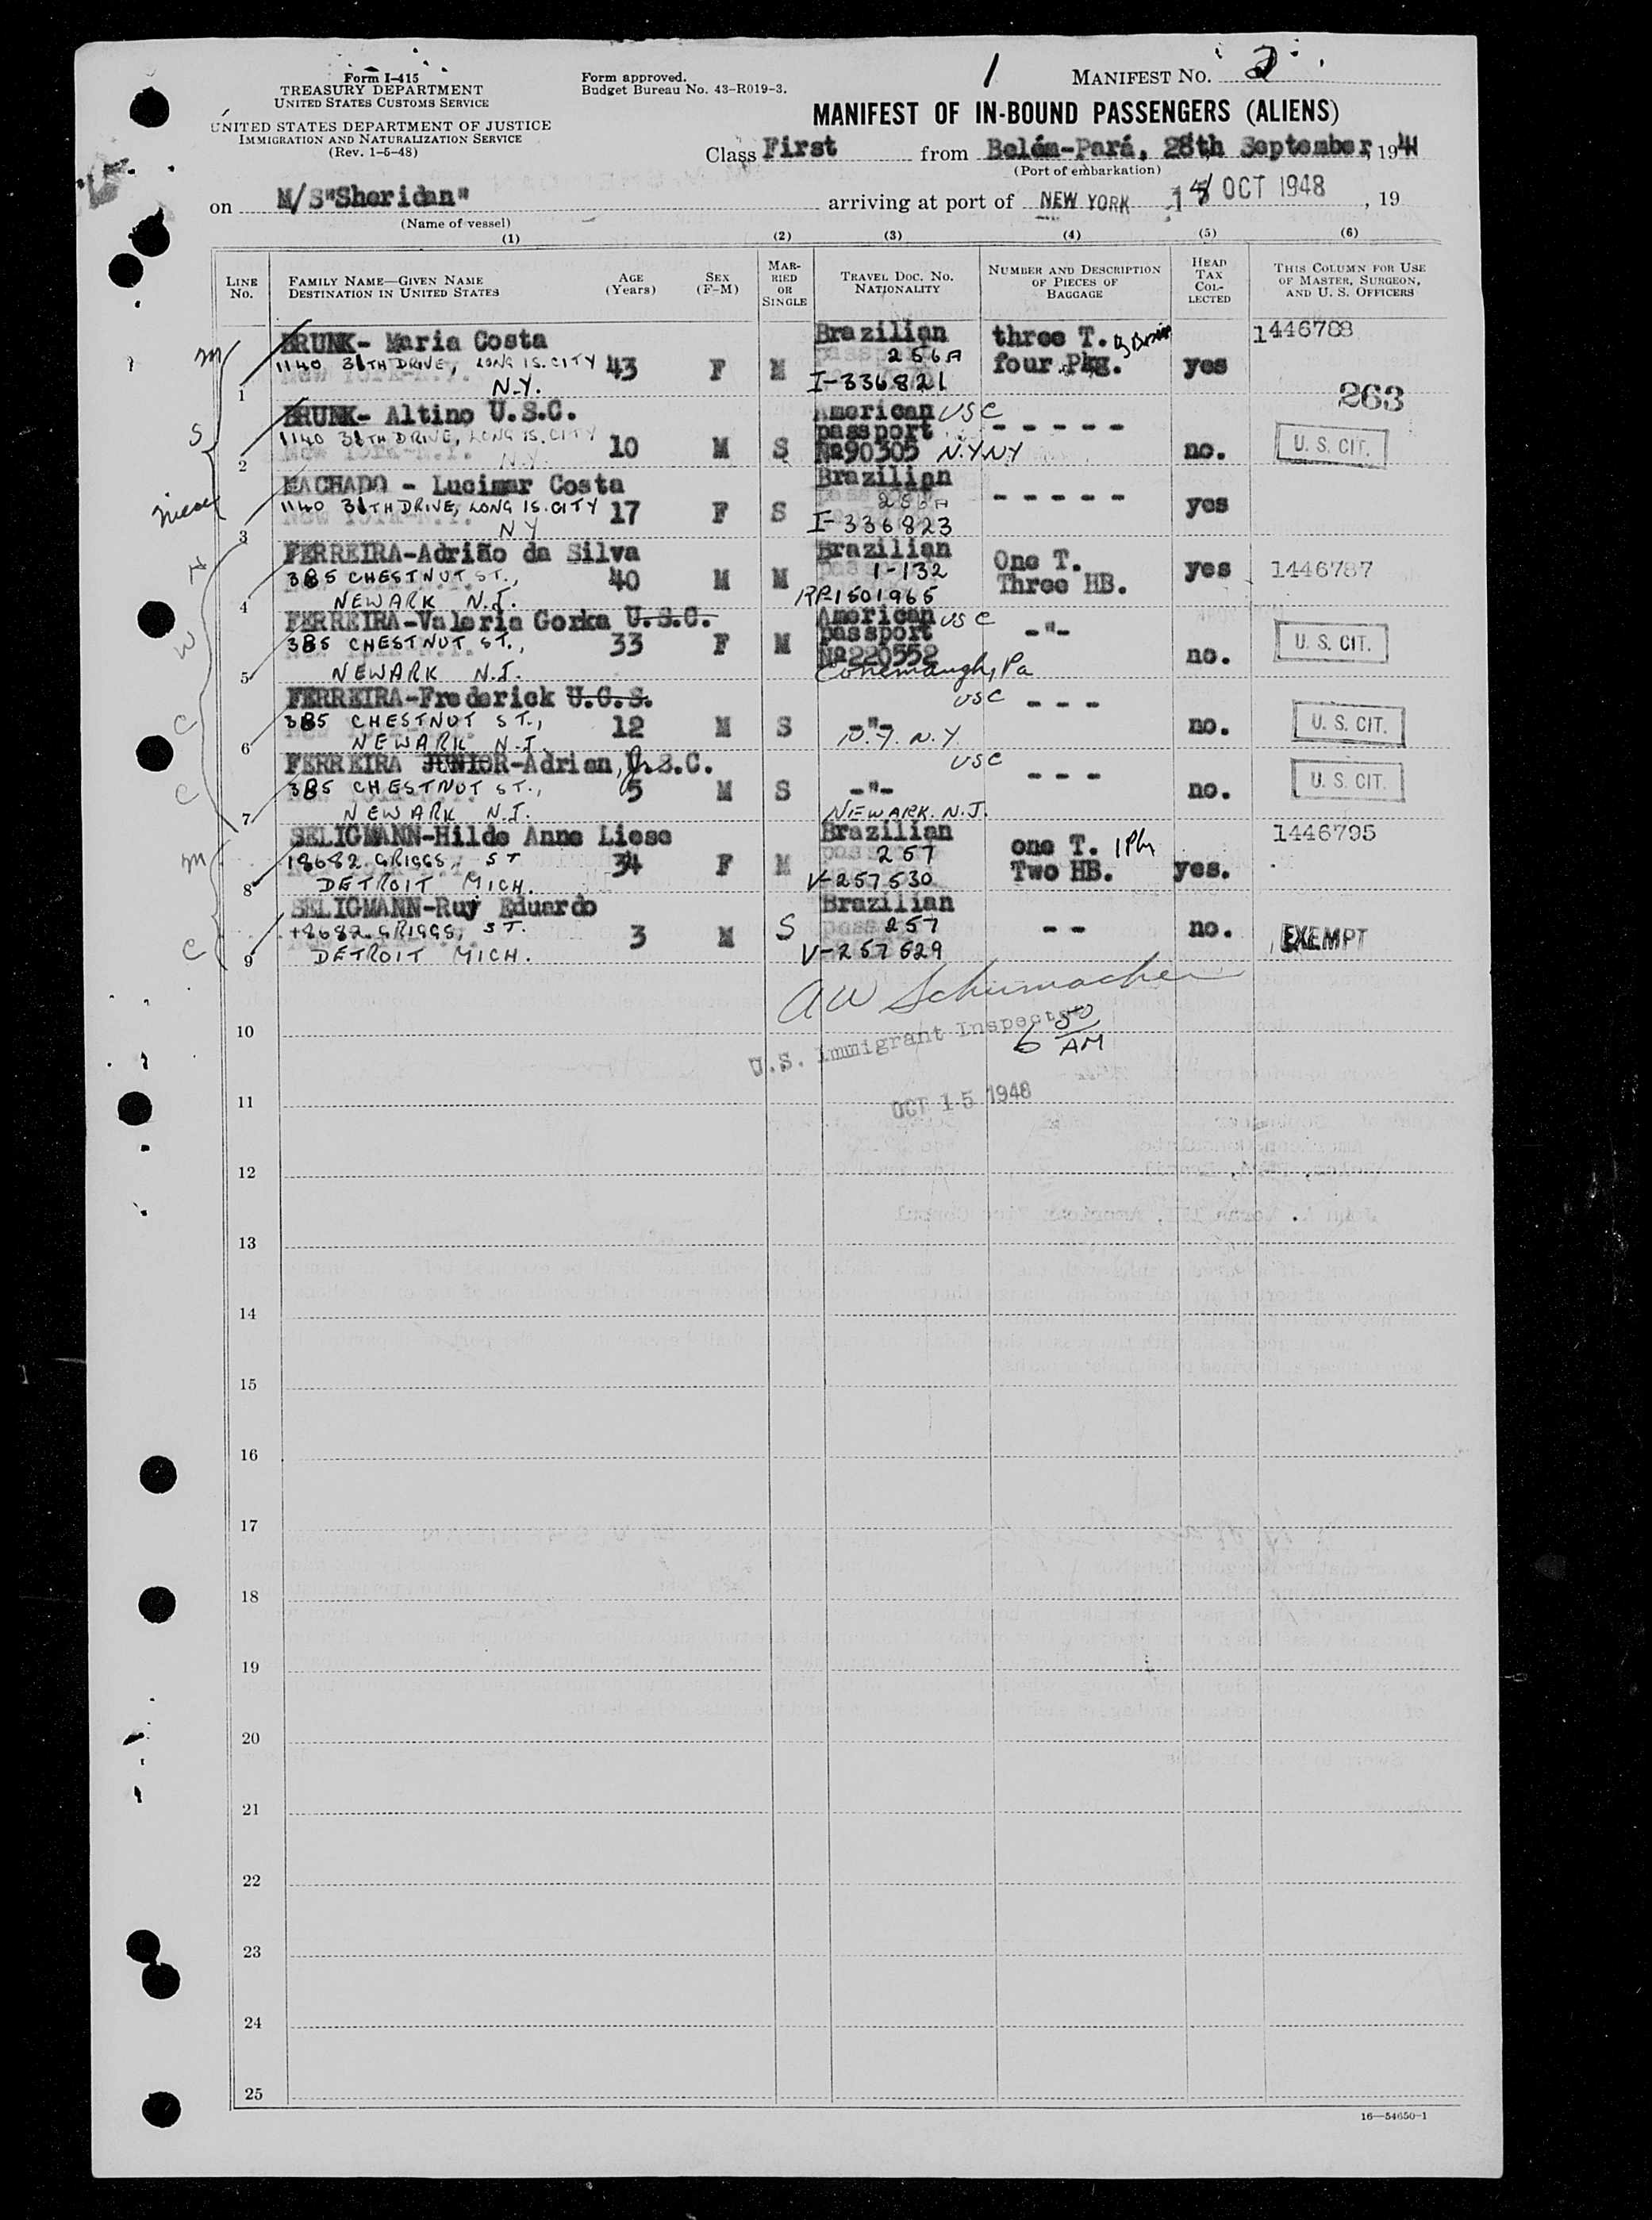 Form I-415
TREASURY DEPARTMENT
UNITED STATES CUSTOMS SERVICE
UNITED STATES DEPARTMENT OF JUSTICE
IMMIGRATION AND NATURALIZATION SERVICE
(Rev. 1-5-48)
Form approved.
Budget Bureau No. 43-R019-3.
1 MANIFEST NO. 2
MANIFEST OF IN-BOUND PASSENGERS (ALIENS)
Class First from Belém-Pará, 28th September, 19
(Port of embarkation)
on M/S"Sheridan" arriving at port of NEW YORK OCT 1948, 19
(Name of vessel)
(1) (2) (3) (4) (5) (6)
LINE NO. FAMILY NAME—GIVEN NAME DESTINATION IN UNITED STATES AGE (Years) SEX (F-M) MARRIED OR SINGLE TRAVEL DOC. NO. NATIONALITY NUMBER AND DESCRIPTION OF PIECES OF BAGGAGE HEAD TAX COLLECTED THIS COLUMN FOR USE OF MASTER, SURGEON, AND U. S. OFFICERS
m BRUNK- Maria Costa Brazilian three T. 1446788
1140 31TH DRIVE, LONG IS. CITY 43 F M 256A four Pkg. yes
1 N.Y. I-336821
263
BRUNK- Altino U.S.C. American USC
S 1140 31TH DRIVE, LONG IS. CITY 10 M S passport - - - - - no. U. S. CIT.
2 N.Y. No90305 N.Y.N.Y
MACHADO - Lucimar Costa Brazilian
niece 1140 31TH DRIVE, LONG IS. CITY 17 F S 256A - - - - - yes
3 NY I-336823
FERREIRA-Adrião da Silva Brazilian One T.
H 385 CHESTNUT ST., 40 M M I-132 Three HB. yes 1446787
4 NEWARK N.J. RP1501965
FERREIRA-Valeria Gorka U.S.C. American USC
W 385 CHESTNUT ST., 33 F M passport -"- no. U. S. CIT.
5 NEWARK N.J. No220552
Conemaugh, Pa
FERREIRA-Frederick U.C.S. USC
C 385 CHESTNUT ST., 12 M S -"- - - - no. U. S. CIT.
6 NEWARK N.J. N.Y. N.Y.
FERREIRA JUNIOR-Adrian, Jr S.C. USC
C 385 CHESTNUT ST., 5 M S -"- - - - no. U. S. CIT.
7 NEWARK N.J. NEWARK. N.J.
SELIGMANN-Hilde Anne Liese Brazilian one T. 1 Pkg 1446795
m 18682 GRIGGS, ST 34 F M 257 Two HB. yes.
8 DETROIT MICH. V-257530
SELIGMANN-Ruy Eduardo Brazilian
18682 GRIGGS, ST. 3 M S 257 - - no. EXEMPT
C 9 DETROIT MICH. V-257529
AW Schumacher
10 U.S. Immigrant Inspector 6 50 AM
11 OCT 15 1948
12
13
14
15
16
17
18
19
20
21
22
23
24
25
16—54650-1